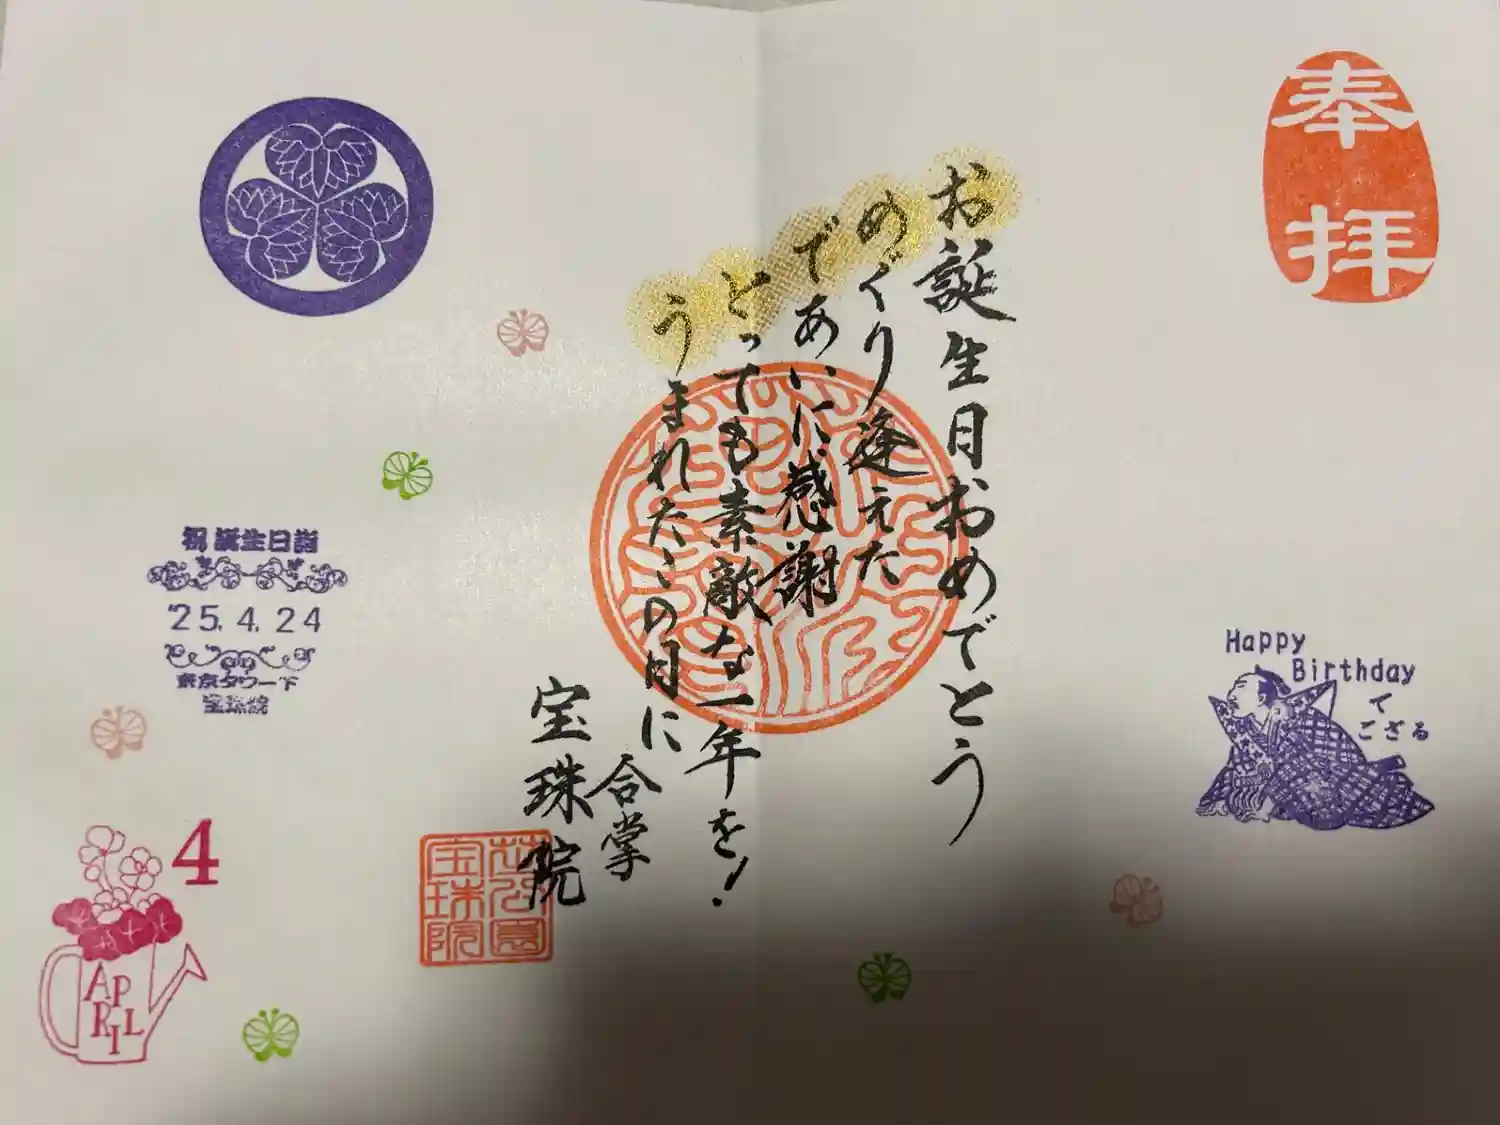 奉拝
お誕生日おめでとう
めぐり逢えた
であいに感謝
とっても素敵な一年を!
うまれたこの日に
合掌
宝珠院
Happy
Birthday
で
ござる
祝誕生日詣
'25.4.24
東京タワー下
宝珠院
芝公園
宝珠院
4
APRIL